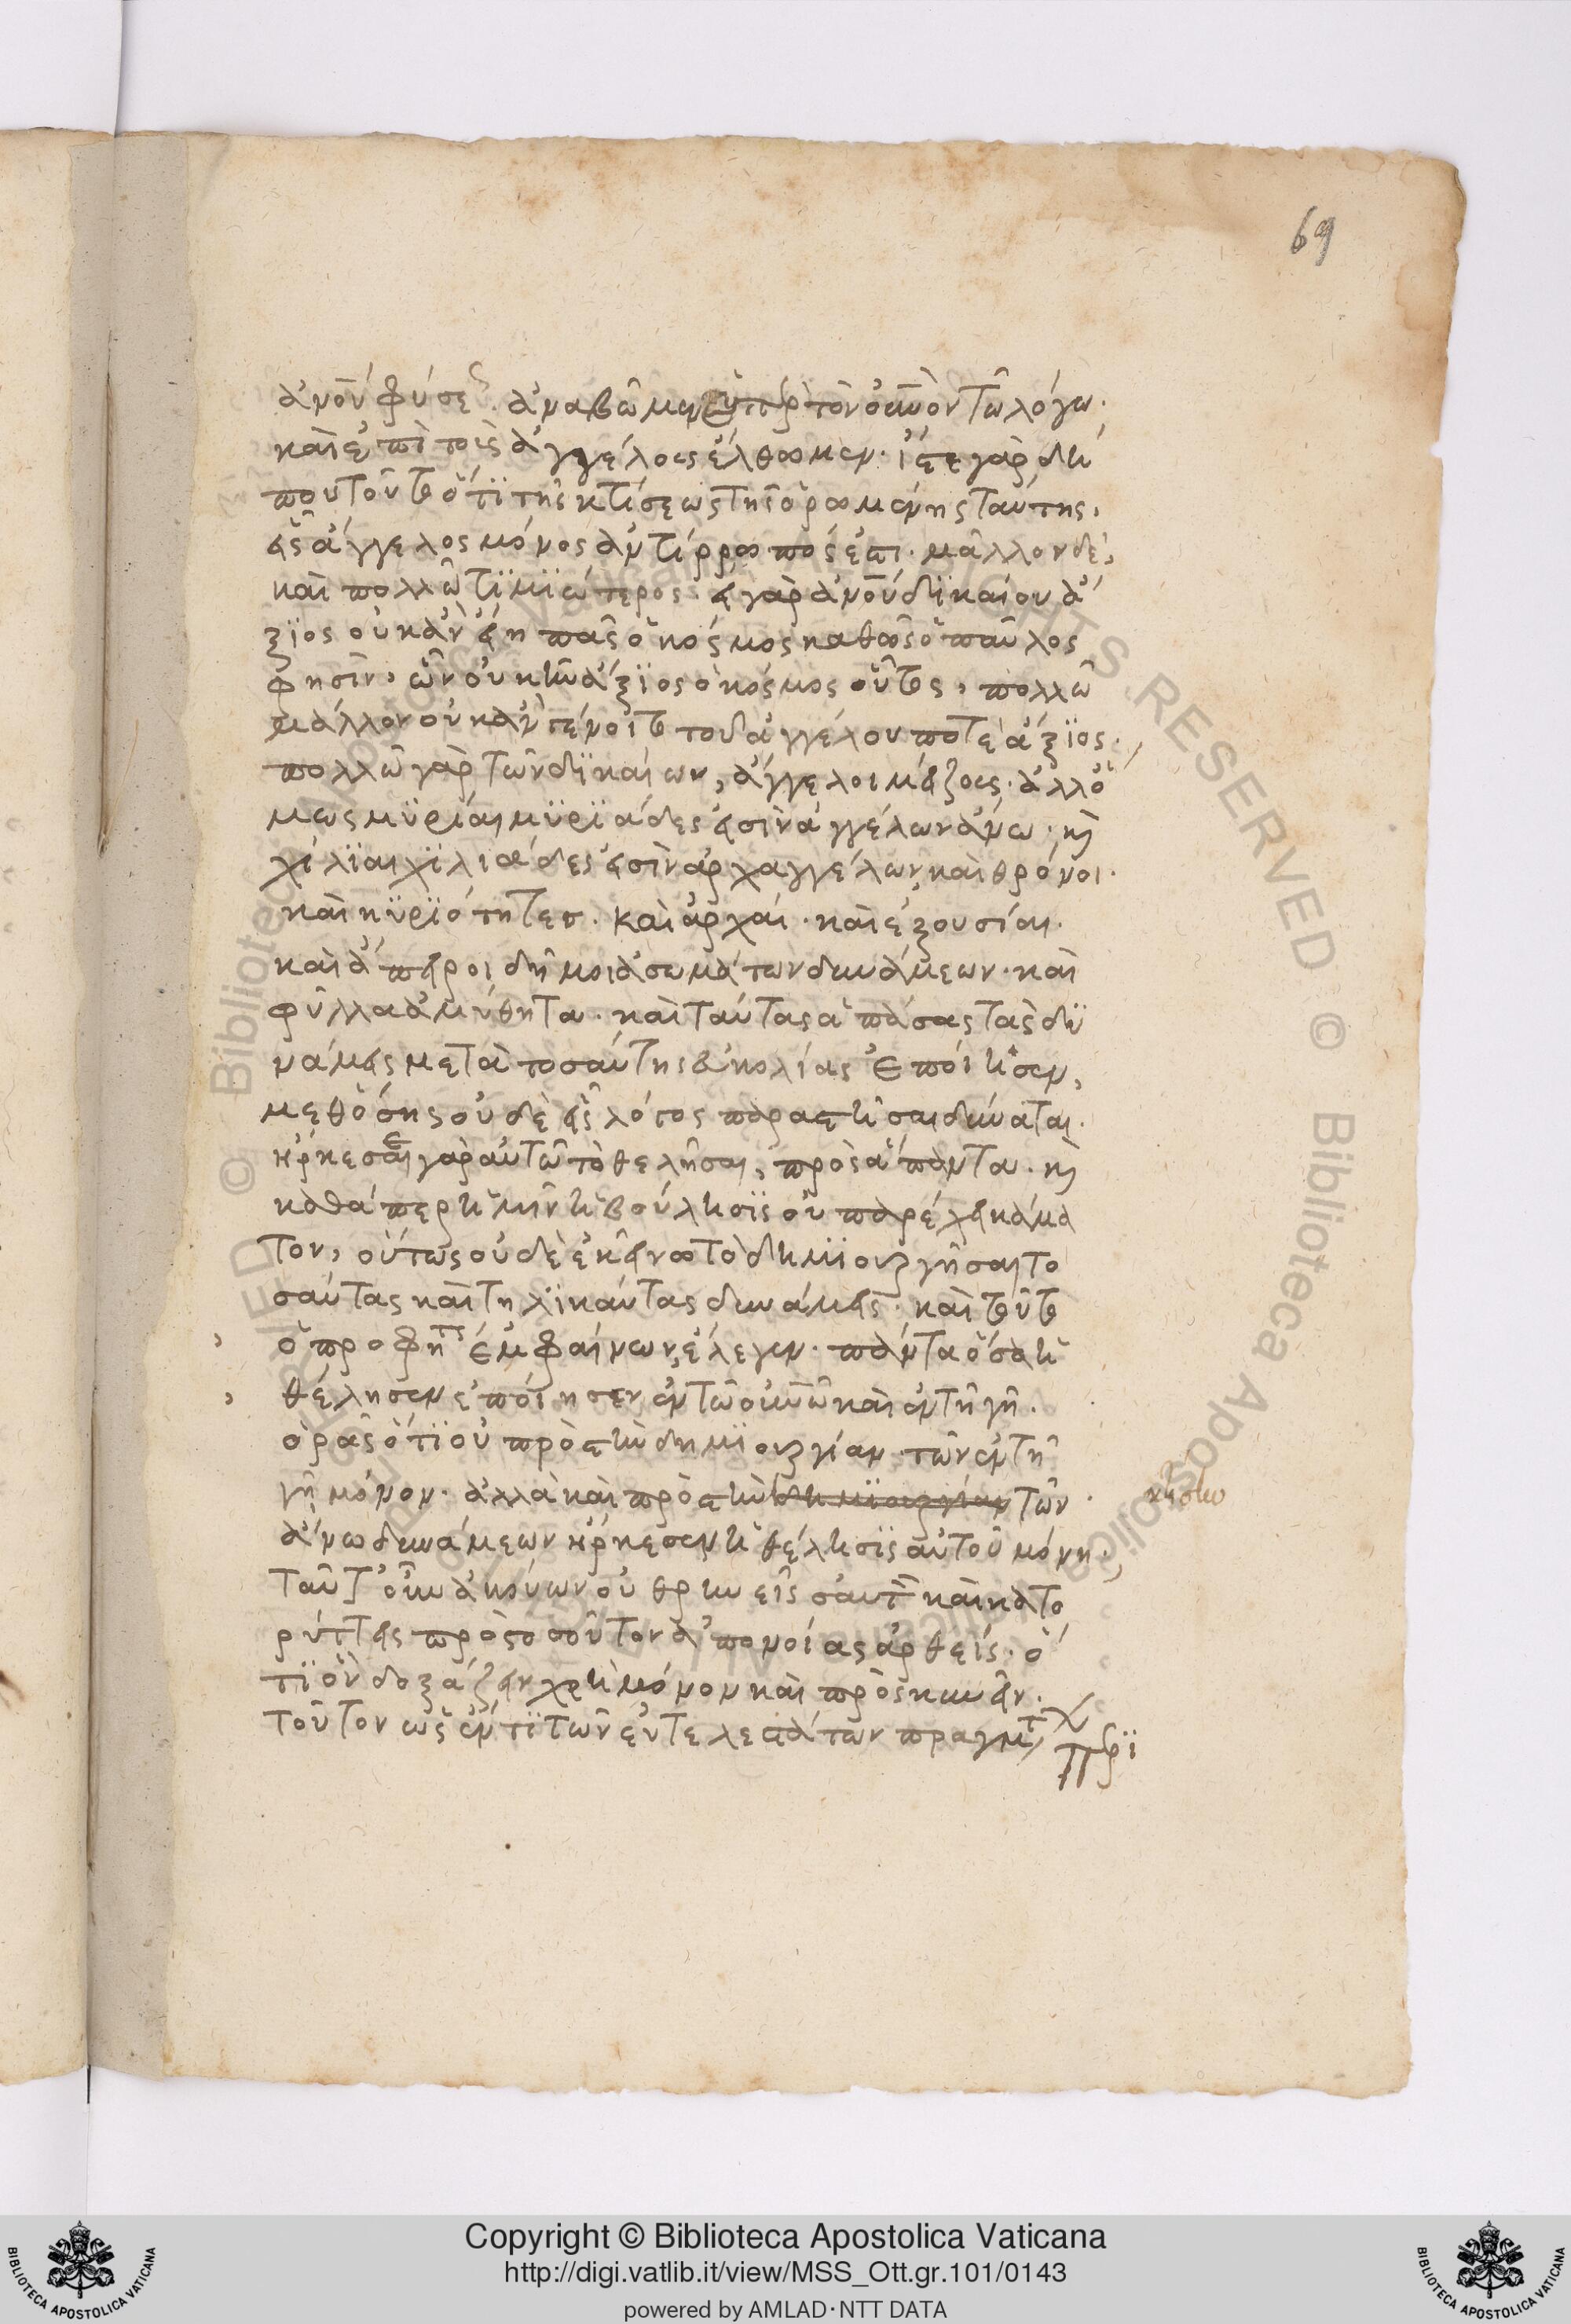 69
ἀνοῦ φύσεως. ἀναβῶμεν ὑπὲρ τὸν οὐνὸν τῶ λόγω.
καὶ ἐπὶ τοῖς ἀγγέλοις ἔλθωμεν. ἴστε γὰρ δή
που τοῦτο ὅτϊ τῆς κτίσεως τῆς ὁρωμένης ταύτης,
εἷς ἄγγελος μόνος ἀντίρροπός ἐστι. μᾶλλον δὲ,
καὶ πολλῶ τϊμϊώτερος. εἰ γὰρ ἀνοῦ δϊκαίου ἄ
ξϊος οὐκ ἂν εἴη πᾶς ὁ κόσμος καθὼς ὁ παῦλος
φησὶν, ὧν οὐκ ἦν ἄξϊος ὁ κόσμος οὗτος, πολλῶ
μᾶλλον οὐκ ἂν γένοιτο τοῦ ἀγγέλου ποτὲ ἄξϊος.
πολλῶ γὰρ τῶν δϊκαίων, ἄγγελοι μείζους. ἀλλ' ὅ
μως μϋρίαι μϋρϊάδες εἰσὶν ἀγγέλων ἄνω. κὶ
χίλϊαι χϊλιάδες εἰσὶν ἀρχαγγέλων, καὶ θρόνοι.
καὶ κϋρϊότητες. καὶ ἀρχαί. καὶ ἐξουσίαι.
καὶ ἄπειροι δῆμοι ἀσωμάτων δυνάμεων. καὶ
φῦλλα ἀμύθητα. καὶ ταύτας ἁπάσας τὰς δϋ
νάμεις μετὰ τοσαύτης εὐκολίας ἐποίησεν,
μεθ' ὅσης οὐδὲ εἷς λόγος παραστῆσαι δύναται.
ἤρκεσε γὰρ αὐτῶ τὸ θελῆσαι, πρὸς ἅπαντα. κὶ
καθάπερ ἡμῖν ἡ βούλησϊς οὐ παρέχει κάμα
τον, οὕτως οὐδὲ ἐκείνω τὸ δημϊουργῆσαι το
σαύτας καὶ τηλϊκαύτας δυνάμεις. καὶ τοῦτο
ὁ προφήτης ἐμφαίνων, ἔλεγεν. πάντα ὅσα ἠ
θέλησεν ἐποίησεν ἐν τῶ οὐνῶ καὶ ἐν τῆ γῆ.
ὁρᾶς ὅτϊ οὐ πρὸς τὴν δημϊουργίαν τῶν ἐν τῆ
γῆ μόνον. ἀλλὰ καὶ πρὸς τὴν δημϊουργίαν τῶν
ἄνω δυνάμεων ἤρκεσεν ἡ θέλησϊς αὐτοῦ μόνη.
ταῦτ' οὖν ἀκούων οὐ θρηνεῖς σαυτὸν καὶ κατο
ρύττεις πρὸς τοσοῦτον ἀπονοίας ἀρθείς. ὅ
τϊ ὃν δοξάζειν χρὴ μόνον καὶ προσκυνεῖν.
τοῦτον ὡς ἕν τϊ τῶν εὐτελεστάτων πραγμάτων
περϊ